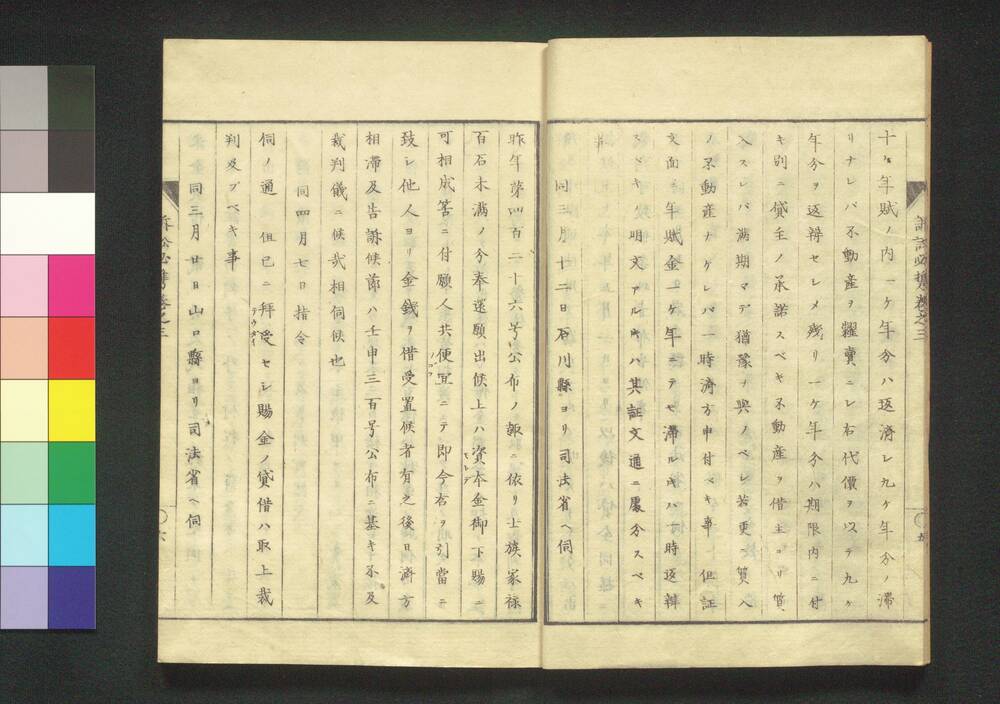 十ヶ年賦ノ内一ケ年分ハ返済シ九ケ年分ノ滞
リナレバ不動産ヲ糶賣ニシ右代價ヲ以テ九ケ
年分ヲ返辨セシメ残リ一ケ年分ハ期限内ニ付
キ別ニ貸主ノ承諾スベキ不動産ヲ借主ヨリ質
入スレバ満期マデ猶豫ヲ與フベシ若更ニ質入
ノ不動産ナケレバ一時済方申付ベキ事 但証
文面ニ年賦金一ケ年ニテモ滞ルキハ一時返辨
スベキノ明文アルキハ其証文通ニ處分スベキ
同三月十二日石川縣ヨリ司法省ヘ伺
昨年第四百二十六号公布ノ趣ニ依リ士族家禄
百石未満ノ分奉還願出候上ハ資本金御下賜ニ
可相成筈ニ付願人共便宜ニテ即今右ヲ引當ニ
致シ他人ヨリ金錢ヲ借受置候者有之後日済方
相滞及告訴候節ハ壬申三百号公布ニ基キ不及
裁判儀ニ候哉相伺候也
同四月七日指令
伺ノ通 但已ニ拜受セシ賜金ノ貸借ハ取上裁
判及ブベキ事
同三月廿日山口縣ヨリ司法省ヘ伺